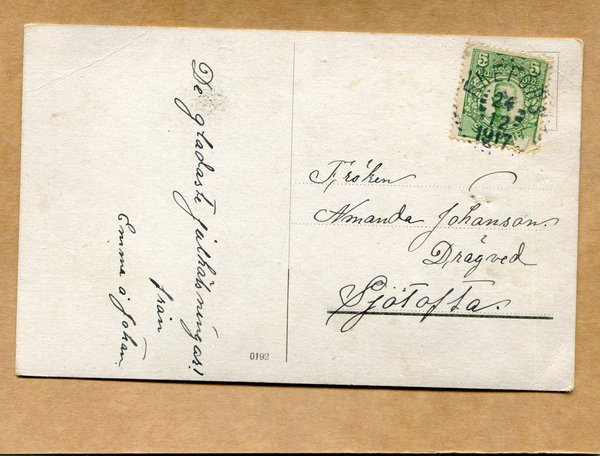 De gladaste julhälsningar!
från
Emma o Johan
5 5
24
12
1917
Fröken
Amanda Johanson.
Drågved
Sjötofta.
0192